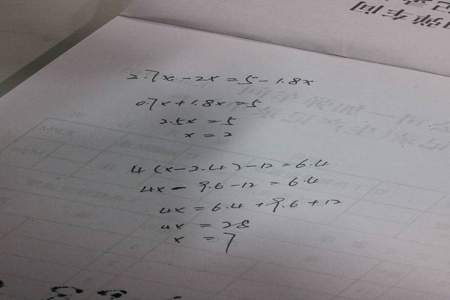 2.7x-2x=5-1.8x
0.7x+1.8x=5
2.5x=5
x=2
4(x-2.4)-12=6.4
4x-9.6-12=6.4
4x=6.4+9.6+12
4x=28
x=7